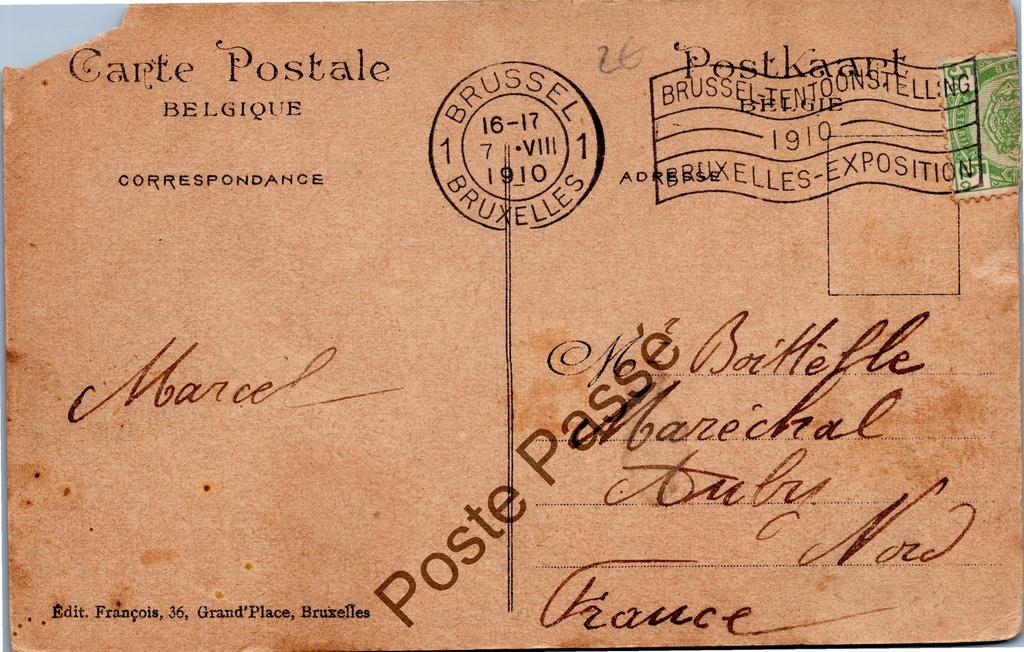 Carte Postale
BELGIQUE
CORRESPONDANCE
26
Postkaart
BELGIE
ADRESSE
BRUSSEL
1 16-17 1
7 •VIII
1910
BRUXELLES
BRUSSEL-TENTOONSTELLING
1910
BRUXELLES-EXPOSITION
Marcel
M Boittelle
Maréchal
Auby
Nord
France
Poste Passé
Édit. François, 36, Grand'Place, Bruxelles